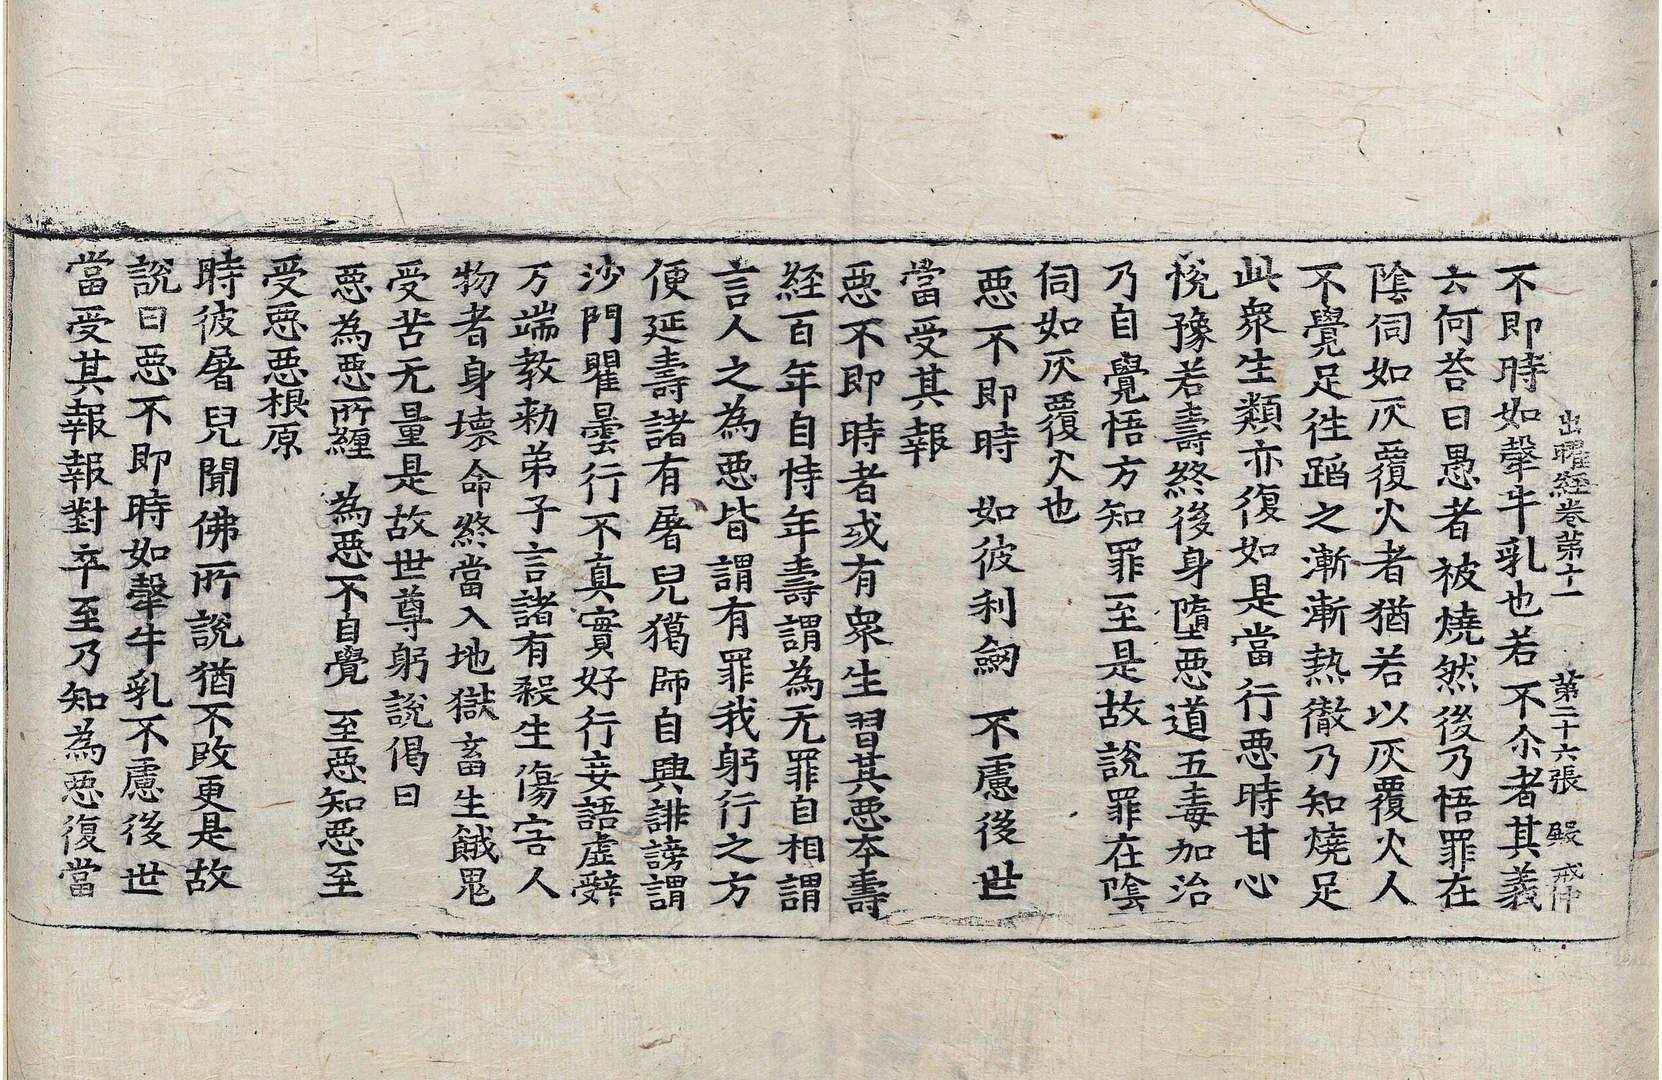 出曜經卷第十一 第二十六張 殿 戒仲
不即時如𤛗牛乳也若不尒者其義
云何荅曰愚者被燒然後乃悟罪在
陰伺如灰覆火者猶若以灰覆火人
不覺足徃蹈之漸漸熱徹乃知燒足
此衆生類亦復如是當行惡時甘心
悅豫若壽終後身墮惡道五毒加治
乃自覺悟方知罪至是故說罪在陰
伺如灰覆火也
惡不即時 如彼利劒 不慮後世
當受其報
惡不即時者或有衆生習其惡本壽
経百年自恃年壽謂為无罪自相謂
言人之為惡皆謂有罪我躬行之方
便延壽諸有屠兒獦師自興誹謗謂
沙門瞿曇行不真實好行妄語虛辝
万端教勑弟子言諸有殺生傷害人
物者身壞命終當入地獄畜生餓鬼
受苦无量是故世尊躬說偈曰
惡為惡所纏 為惡不自覺 至惡知惡至
受惡惡根原
時彼屠兒聞佛所說猶不改更是故
說曰惡不即時如𤛗牛乳不慮後世
當受其報報對卒至乃知為惡復當